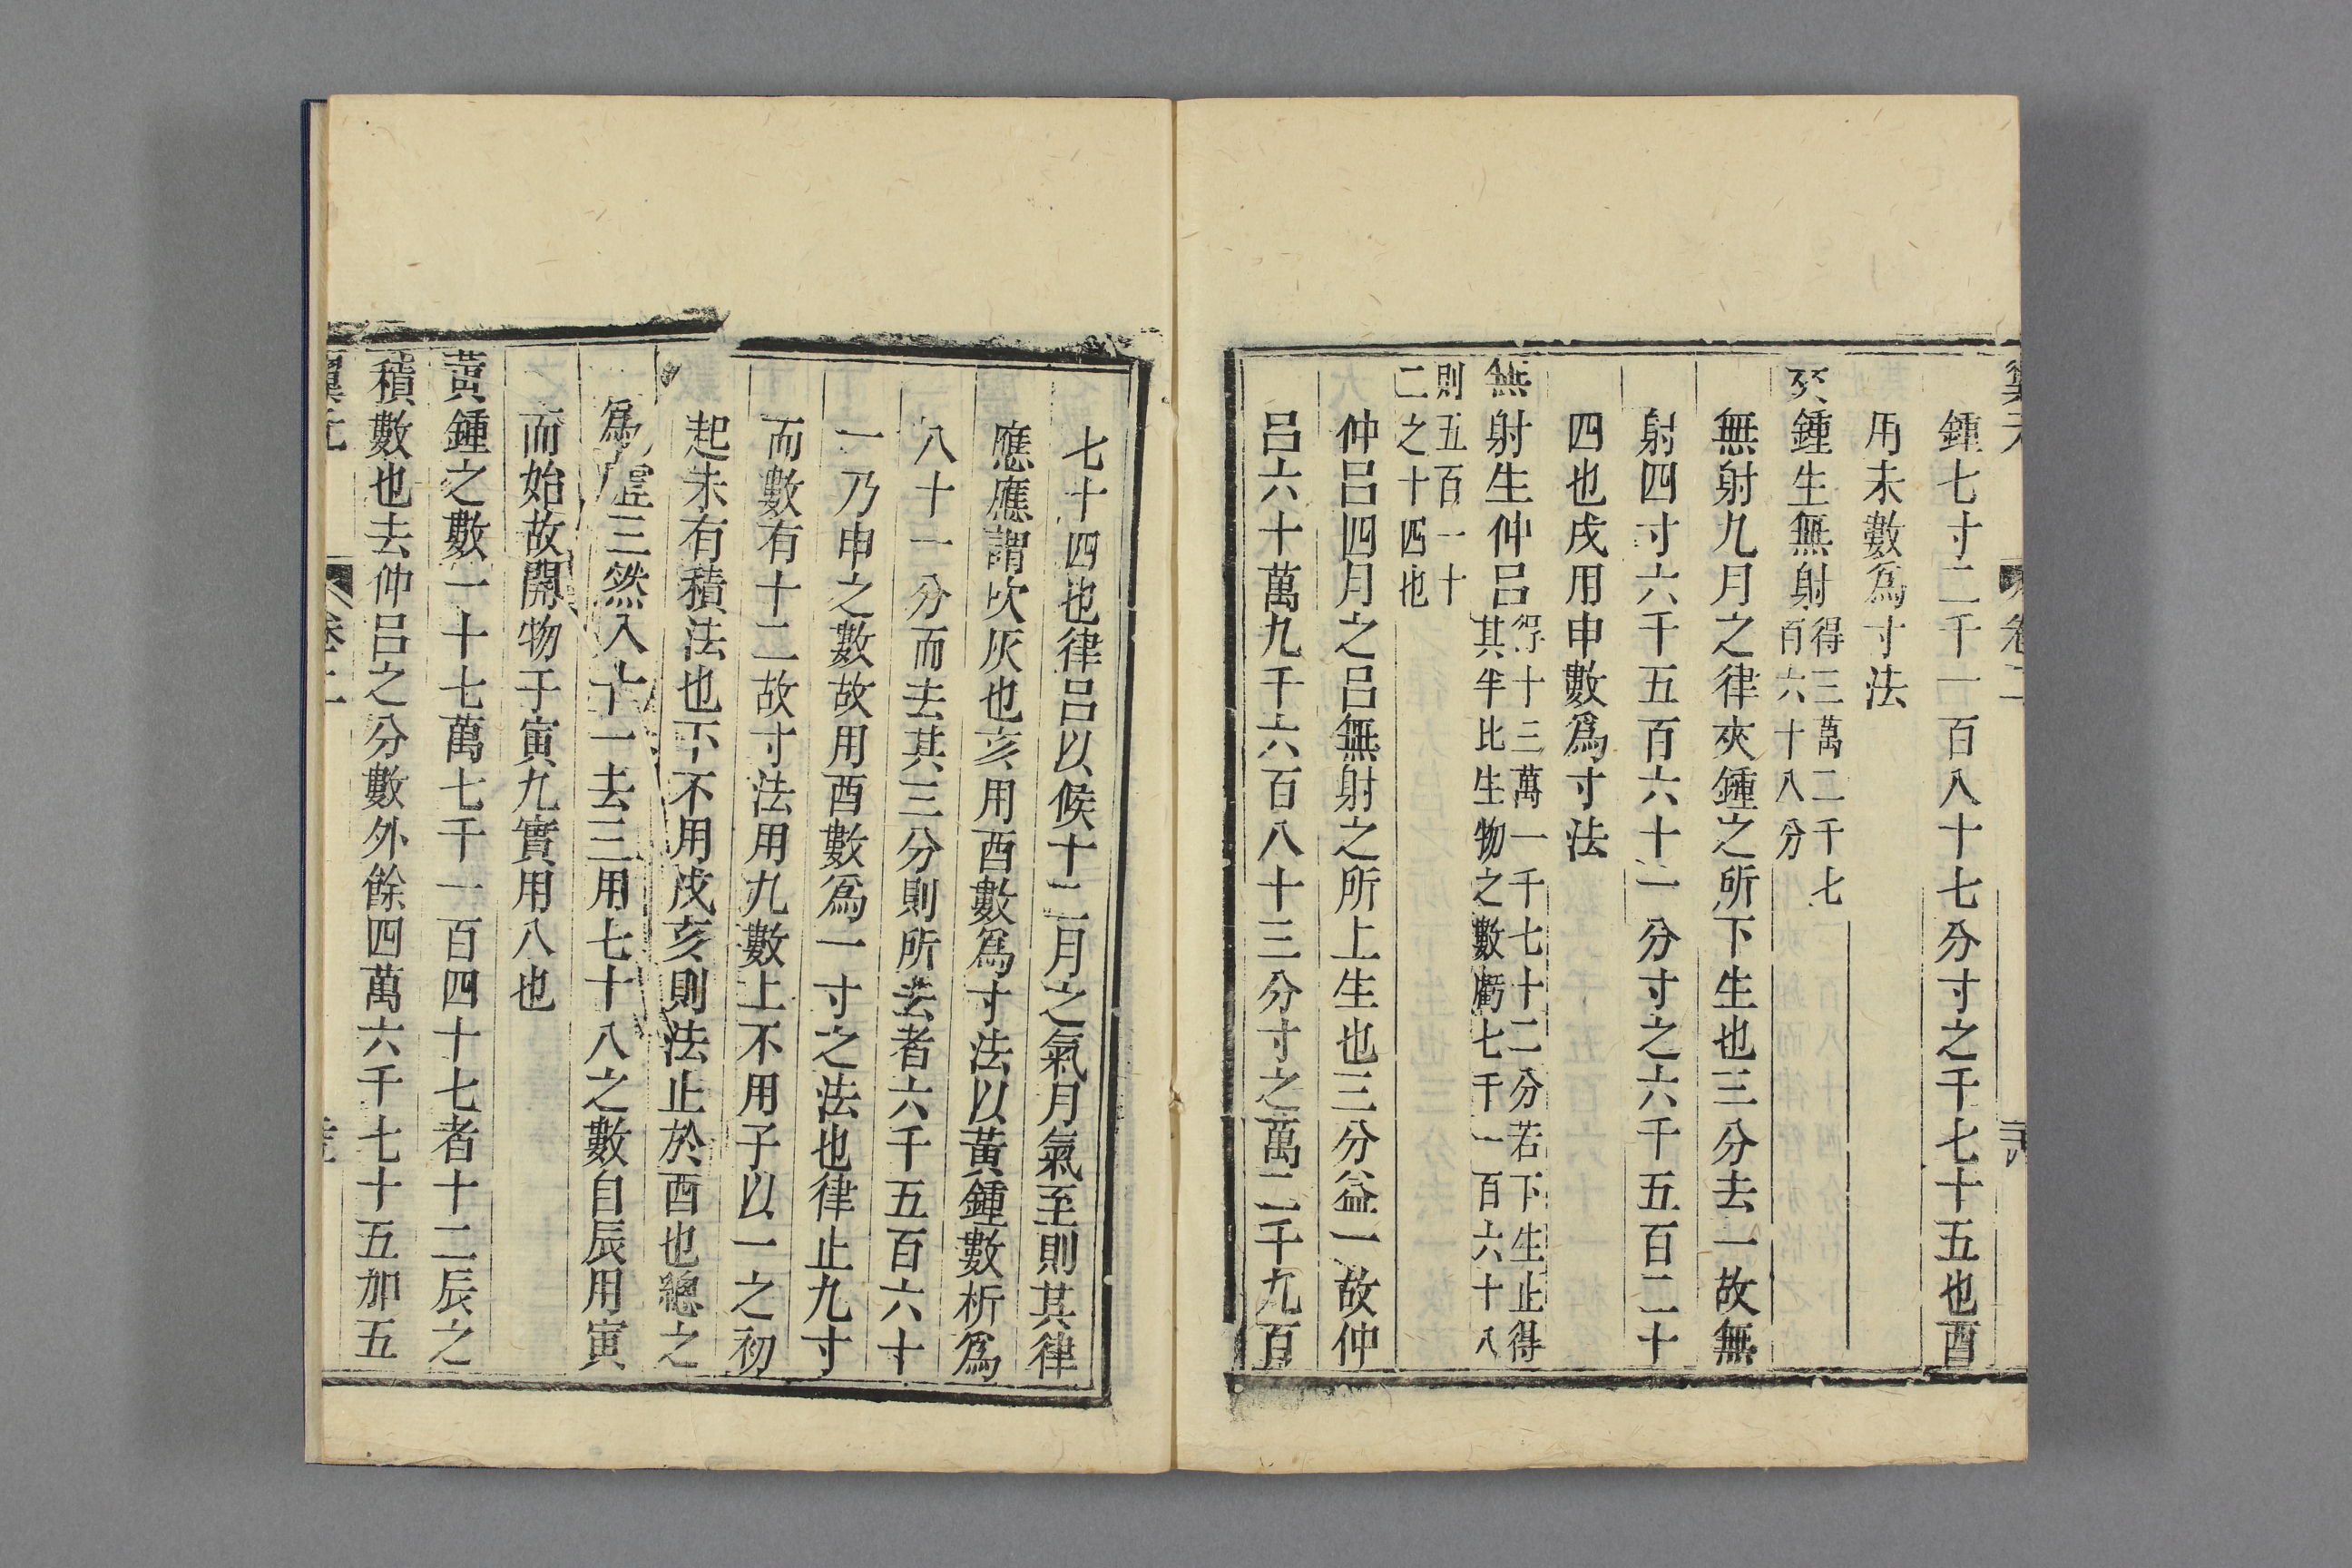 鍾七寸二千一百八十七分寸之千七十五也酉
用未數爲寸法
夾鍾生無射得三萬二千七百六十八分
無射九月之律夾鍾之所下生也三分去一故無
射四寸六千五百六十一分寸之六千五百二十
四也戌用申數爲寸法
無射生仲呂得十三萬一千七十二分若下生止得其半比生物之數虧七千一百六十八
則五百一十二之十四也
仲呂四月之呂無射之所上生也三分益一故仲
呂六十萬九千六百八十三分寸之萬二千九百
七十四也律呂以候十二月之氣月氣至則其律
應應謂吹灰也亥用酉數爲寸法以黃鍾數析爲
八十一分而去其三分則所去者六千五百六十
一乃申之數故用酉數爲一寸之法也律止九寸
而數有十二故寸法用九數上不用子以一之初
起未有積法也下不用戌亥則法止於酉也總之
爲虛三然八十一去三用七十八之數自辰用寅
而始故開物于寅九實用八也
黃鍾之數一十七萬七千一百四十七者十二辰之
積數也去仲呂之分數外餘四萬六千七十五加五
翼元 卷二